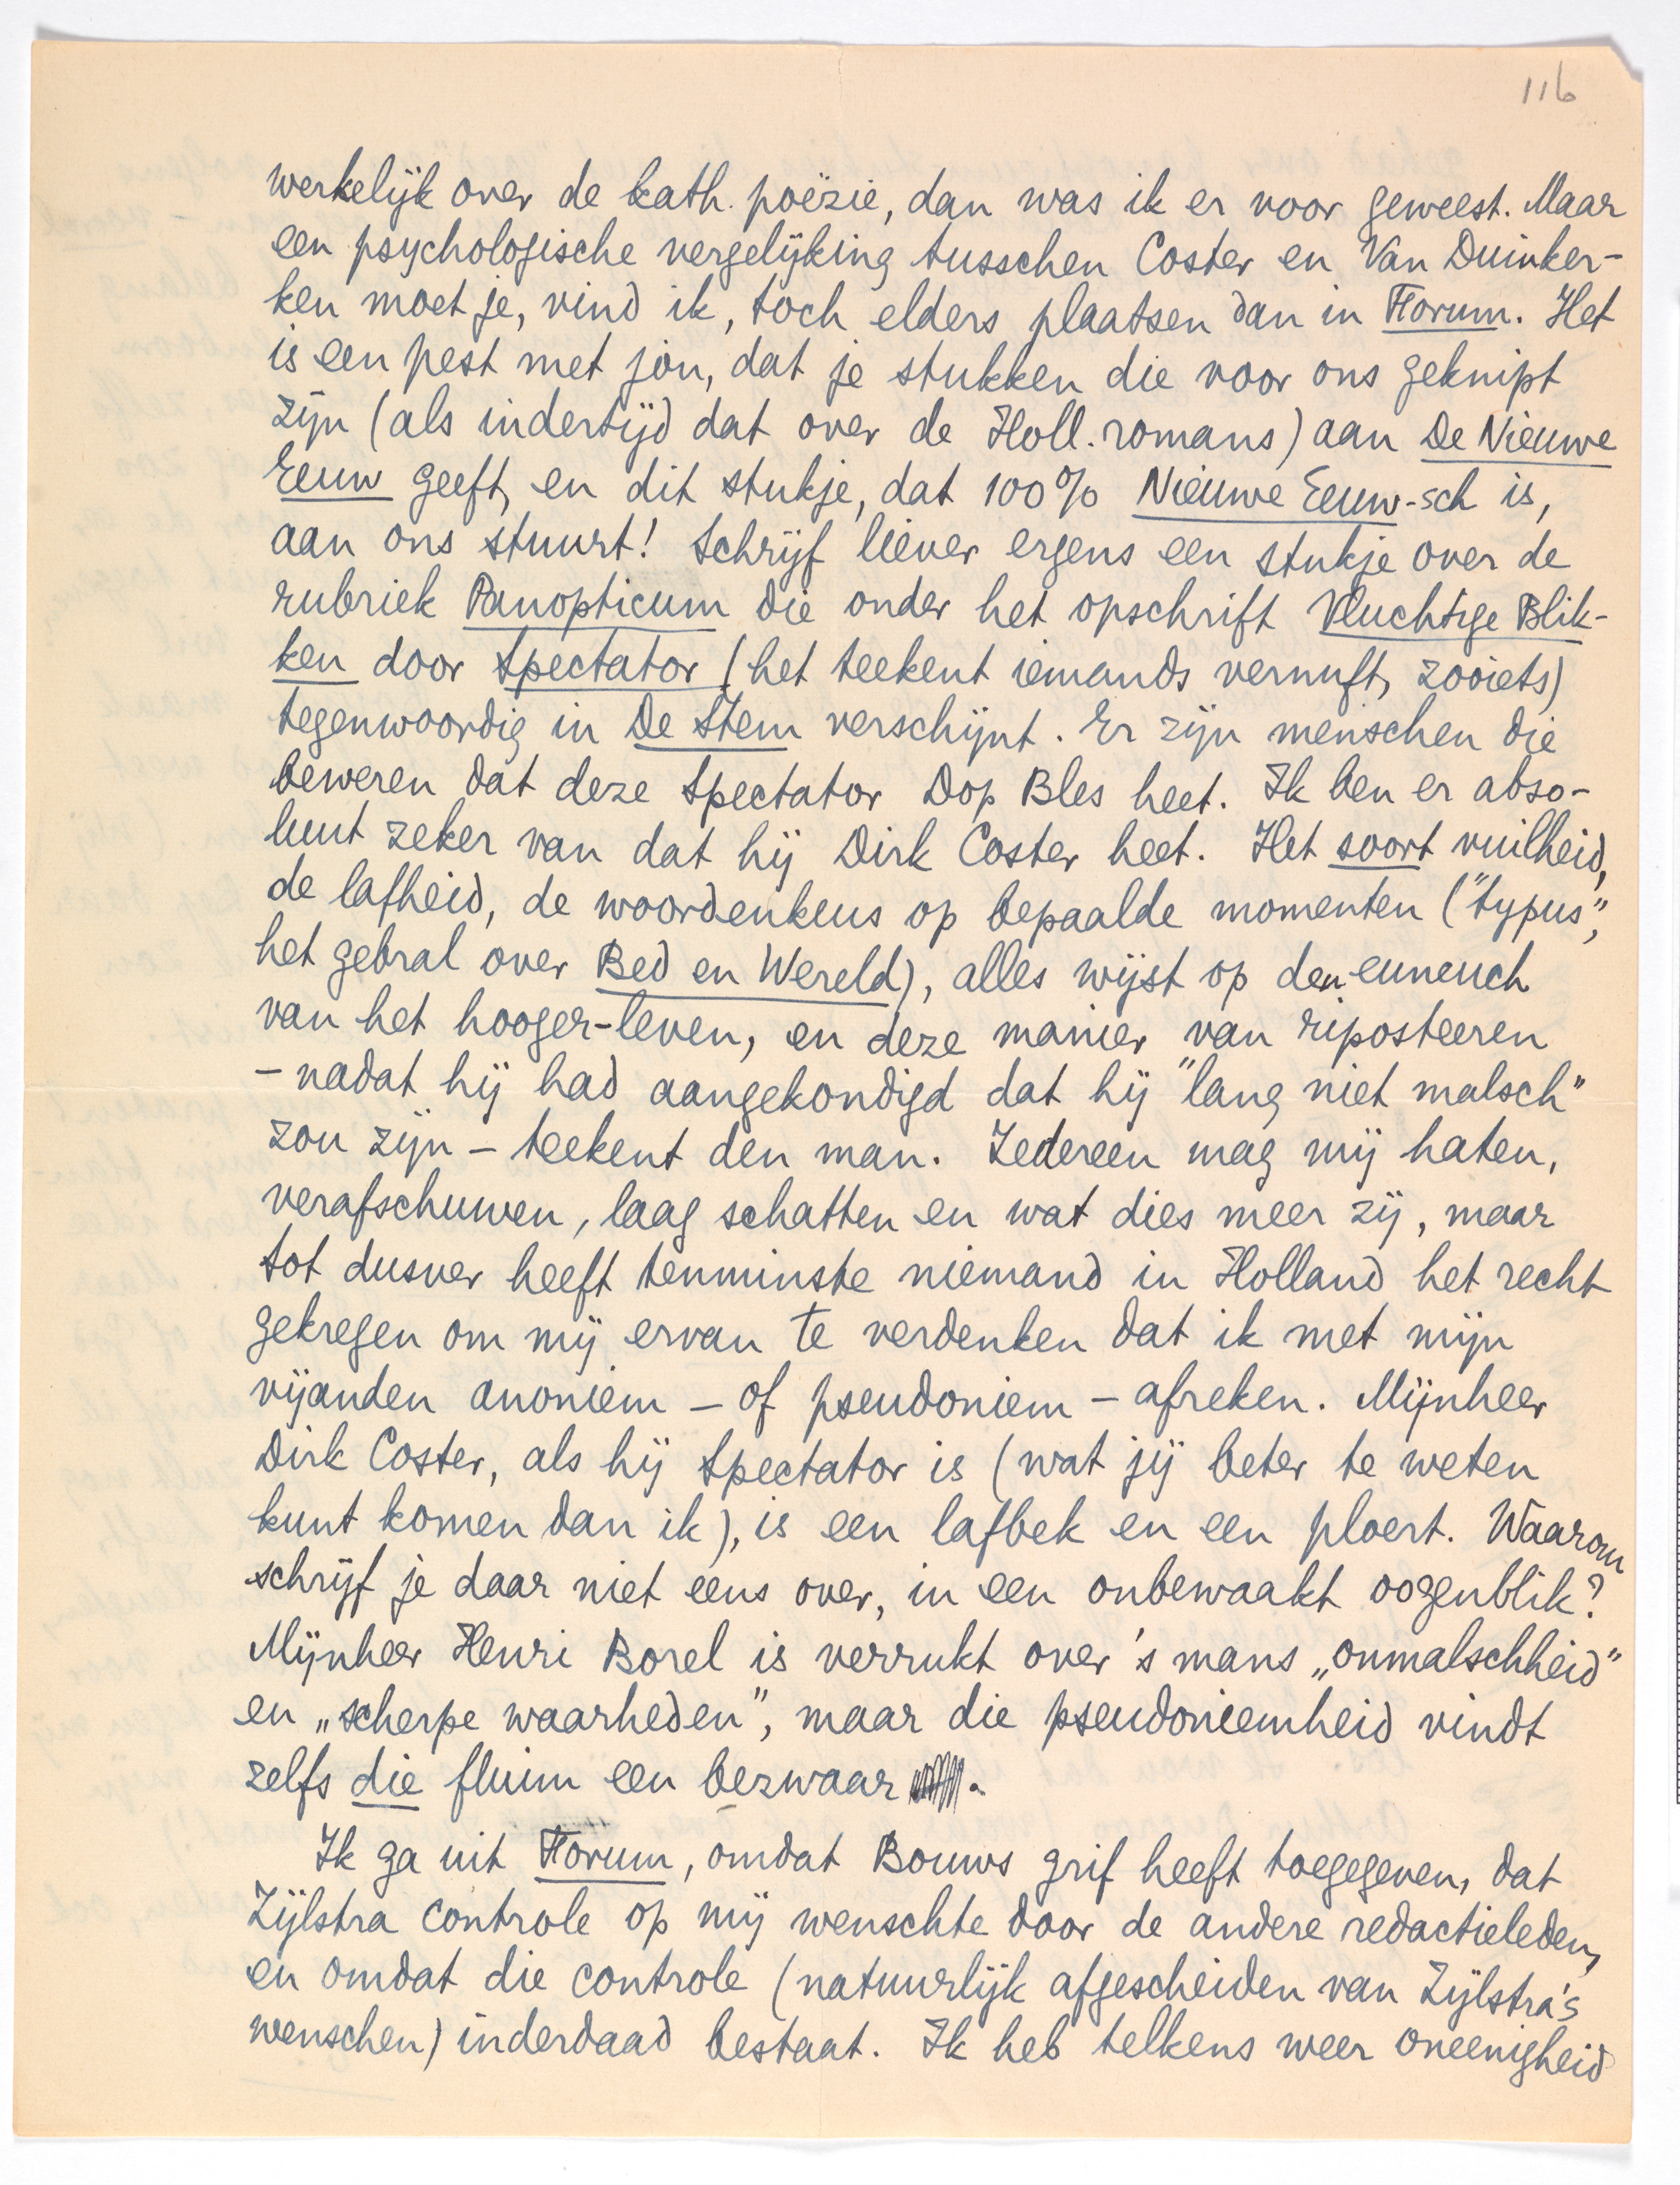 116
werkelijk over de kath. poëzie, dan was ik er voor geweest. Maar
een psychologische vergelijking tusschen Coster en Van Duinker-
ken moet je, vind ik, toch elders plaatsen dan in Forum. Het
is een pest met jou, dat je stukken die voor ons geknipt
zijn (als indertijd dat over de Holl. romans) aan De Nieuwe
Eeuw geeft, en dit stukje, dat 100% Nieuwe Eeuw-sch is,
aan ons stuurt! Schrijf liever ergens een stukje over de
rubriek Panopticum die onder het opschrift Vluchtige Blik-
ken door Spectator (het teekent iemands vernuft, zooiets)
tegenwoordig in De Stem verschijnt. Er zijn menschen die
beweren dat deze Spectator Dop Bles heet. Ik ben er abso-
luut zeker van dat hij Dirk Coster heet. Het soort vuilheid,
de lafheid, de woordenkeus op bepaalde momenten ("typus",
het gebral over Bed en Wereld), alles wijst op den eunuch
van het hooger-leven, en deze manier van riposteeren
– nadat hij had aangekondigd dat hij "lang niet malsch"
zou zijn – teekent den man. Iedereen mag mij haten,
verafschuwen, laag schatten en wat dies meer zij, maar
tot dusver heeft tenminste niemand in Holland het recht
gekregen om mij ervan te verdenken dat ik met mijn
vijanden anoniem – of pseudoniem – afreken. Mijnheer
Dirk Coster, als hij Spectator is (wat jij beter te weten
kunt komen dan ik), is een lafbek en een ploert. Waarom
schrijf je daar niet eens over, in een onbewaakt oogenblik?
Mijnheer Henri Borel is verrukt over 's mans „onmalschheid"
en „scherpe waarheden", maar die pseudoniemheid vindt
zelfs die fluim een bezwaar.
Ik ga uit Forum, omdat Bouws grif heeft toegegeven, dat
Zijlstra controle op mij wenschte door de andere redactieleden,
en omdat die controle (natuurlijk afgescheiden van Zijlstra's
wenschen) inderdaad bestaat. Ik heb telkens weer oneenigheid